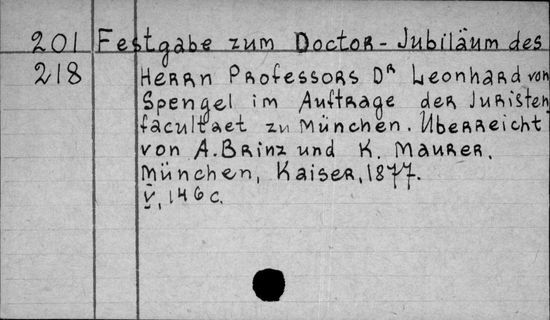 201 Festgabe zum Doctor-Jubiläum des
218 Herrn Professors Dr Leonhard von
Spengel im Auftrage der Juristen
facultaet zu München. Überreicht
von A. Brinz und K. Maurer.
München, Kaiser, 1877.
V, 146 c.